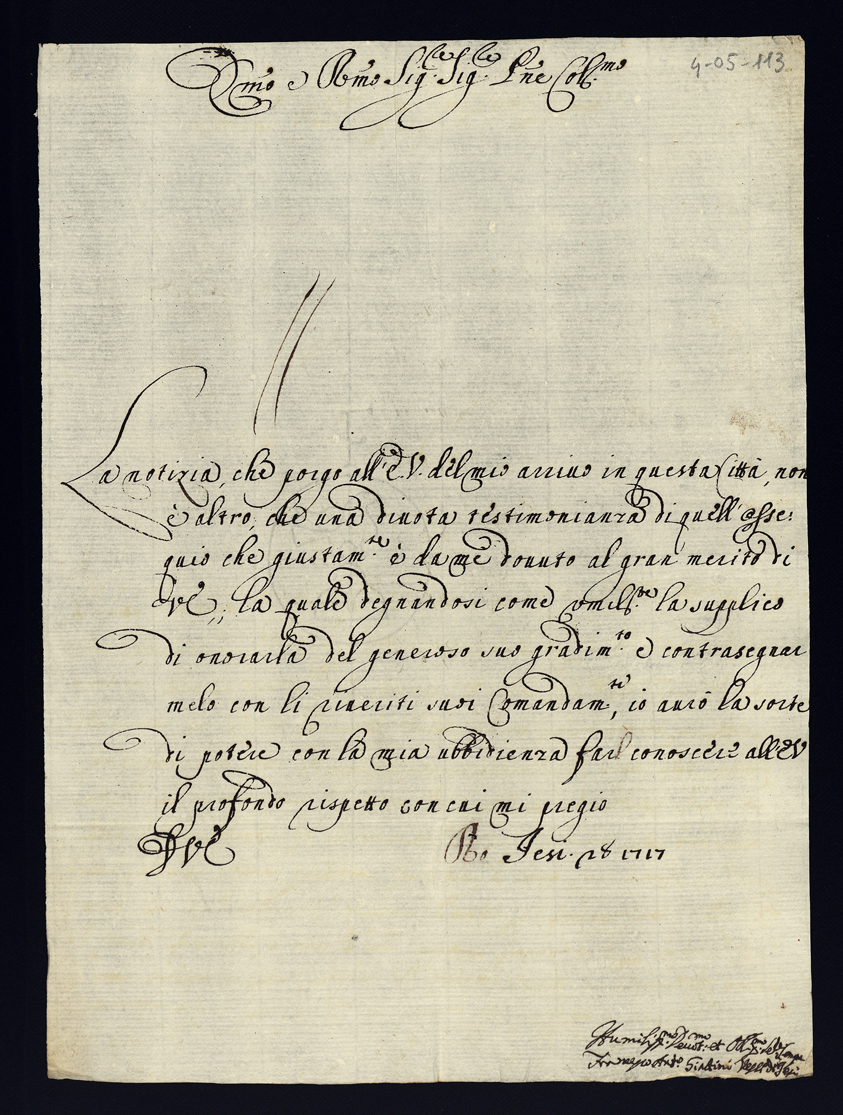 4-05-113
Emo e Rmo Sig.re Sig.re Pne Col.mo
La notizia, che porgo all'E.V. del mio arrivo in questa Città, non
è altro, che una divota testimonianza di quell'osse:
quio che giustam.te è da me dovuto al gran merito di
VE, la quale degnandosi come umilm.te la supplico
di onorarla del generoso suo gradim.to e contrasegnar
melo con li riveriti suoi Comandam.ti, io avrò la sorte
di potere con la mia ubbidienza far conoscere all'EV
il profondo rispetto con cui mi pregio
DVE
Jesi. 28 1717
Humiliss.mo Devot.mo et Obl.mo
Fran.co Ant.o